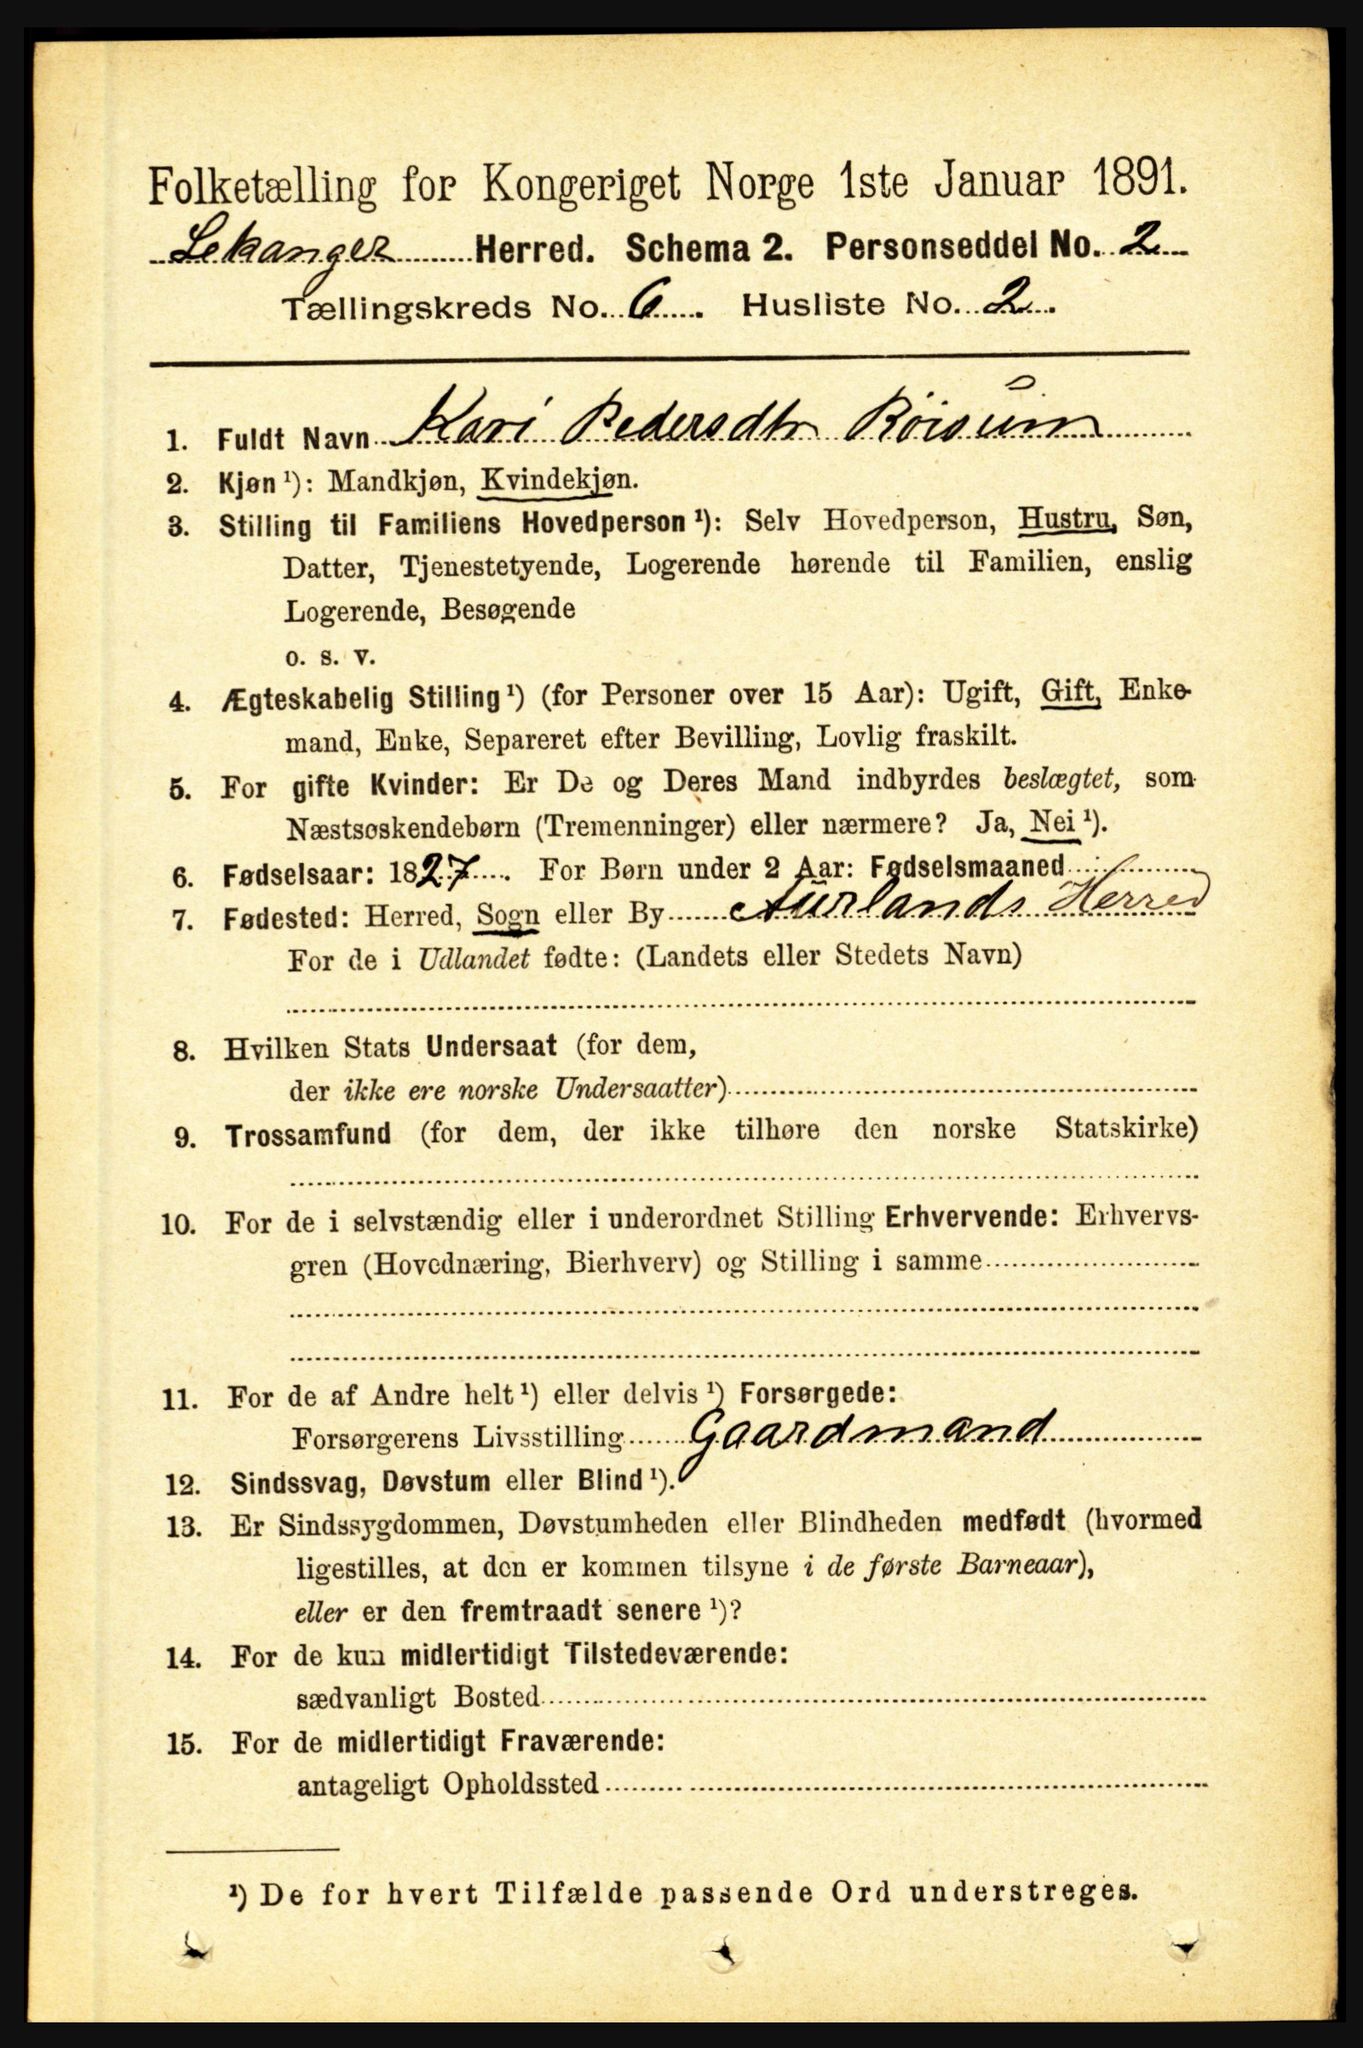 Folketælling for Kongeriget Norge 1ste Januar 1891.
Lekanger Herred. Schema 2. Personseddel No. 2
Tællingskreds No. 6. Husliste No. 2.
1. Fuldt Navn Kari Pedersdtr Röisum
2. Kjøn ¹): Mandkjøn, Kvindekjøn.
3. Stilling til Familiens Hovedperson ¹): Selv Hovedperson, Hustru, Søn,
Datter, Tjenestetyende, Logerende hørende til Familien, enslig
Logerende, Besøgende
o. s. v.
4. Ægteskabelig Stilling ¹) (for Personer over 15 Aar): Ugift, Gift, Enke-
mand, Enke, Separeret efter Bevilling, Lovlig fraskilt.
5. For gifte Kvinder: Er De og Deres Mand indbyrdes beslægtet, som
Næstsøskendebørn (Tremenninger) eller nærmere? Ja, Nei ¹).
6. Fødselsaar: 1827. For Børn under 2 Aar: Fødselsmaaned
7. Fødested: Herred, Sogn eller By Aurlands Herred
For de i Udlandet fødte: (Landets eller Stedets Navn)
8. Hvilken Stats Undersaat (for dem,
der ikke ere norske Undersaatter)
9. Trossamfund (for dem, der ikke tilhøre den norske Statskirke)
10. For de i selvstændig eller i underordnet Stilling Erhvervende: Erhvervs-
gren (Hovednæring, Bierhverv) og Stilling i samme
11. For de af Andre helt ¹) eller delvis ¹) Forsørgede:
Forsørgerens Livsstilling Gaardmand
12. Sindssvag, Døvstum eller Blind ¹).
13. Er Sindssygdommen, Døvstumheden eller Blindheden medfødt (hvormed
ligestilles, at den er kommen tilsyne i de første Barneaar),
eller er den fremtraadt senere ¹)?
14. For de kun midlertidigt Tilstedeværende:
sædvanligt Bosted
15. For de midlertidigt Fraværende:
antageligt Opholdssted
¹) De for hvert Tilfælde passende Ord understreges.